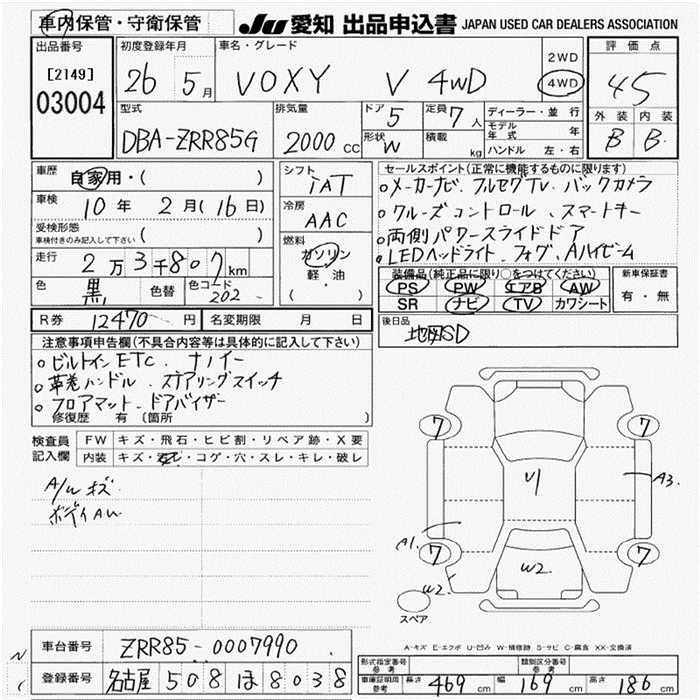 車内保管・守衛保管
JU 愛知 出品申込書 JAPAN USED CAR DEALERS ASSOCIATION
出品番号
[2149]
03004
初度登録年月
26 5月
車名・グレード
VOXY V 4WD
2WD
4WD
評価点
4.5
外装 内装
B B
型式
DBA-ZRR85G
排気量
2000 CC
ドア 5
形状 W
定員 7人
積載 kg
ディーラー・並行
モデル年式 年
ハンドル 左・右
車歴
自家用・( )
車検
10年 2月(16日)
受検形態
車検付きのみ記入して下さい ( )
走行
2万3千807km
色 黒 色替 色コード 202
シフト
IAT
冷房
AAC
燃料
ガソリン
軽・油
( ・ )
セールスポイント(正常に機能するものに限ります)
○メーカーナビ、フルセグTV、バックカメラ
○クルーズコントロール、スマートキー
○両側パワースライドドア
○LEDヘッドライト、フォグ、Aハイビーム
装備品(純正品に限り○をつけてください)
PS PW エアB AW
SR ナビ TV カワシート
新車保証書
有・無
R券 12470 円 名変期限 月 日
後日品
地図SD
注意事項申告欄(不具合内容等は具体的に記入して下さい)
○ビルトインETC、ナノイー
○革巻ハンドル、ステアリングスイッチ
○フロアマット、ドアバイザー
修復歴 有 〔箇所 〕
検査員記入欄
FW キズ・飛石・ヒビ割・リペア跡・X要
内装 キズ・汚れ・コゲ・穴・スレ・キレ・破レ
A/W キズ
ボディAW
7 7
U1
A3
A1
7 7
W2 W2
スペア
A-キズ E-エクボ U-凹み W-補修跡 S-サビ C-腐食 XX-交換済
車台番号 ZRR85-0007990
登録番号 名古屋 508 ほ 8038
形式指定番号 参考
類別区分番号 参考
車庫証明用 参考 長さ 469 cm 幅 169 cm 高さ 186 cm